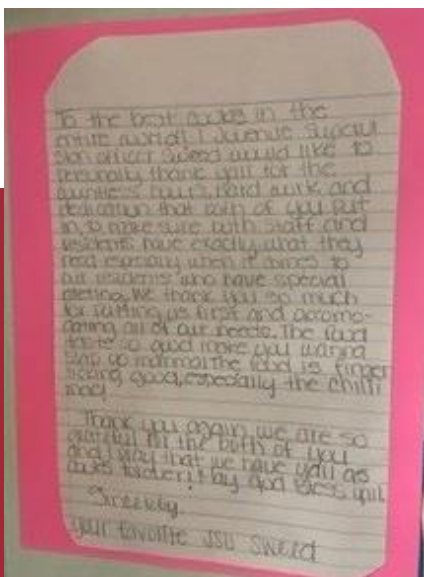 To the best cooks in the
entire world! I Juvenile Supervi
sion officer Sweed would like to
personally thank you for the
hours, hard work, and
dedication that both of you put
in, to make sure both staff and
residents have exactly what they
need especially when it comes to
our residents who have special
dieting. We thank you so much
for putting us first and accomo-
dating all of our needs. The food
taste so good make you wanna
slap yo momma! The food is finger
licking good, especially the chilli
mac!
Thank you again, we are so
grateful for the both of you
and I pray that we have yall as
cooks forever! May God bless yall.
Sincerely,
your favorite JSO Sweed